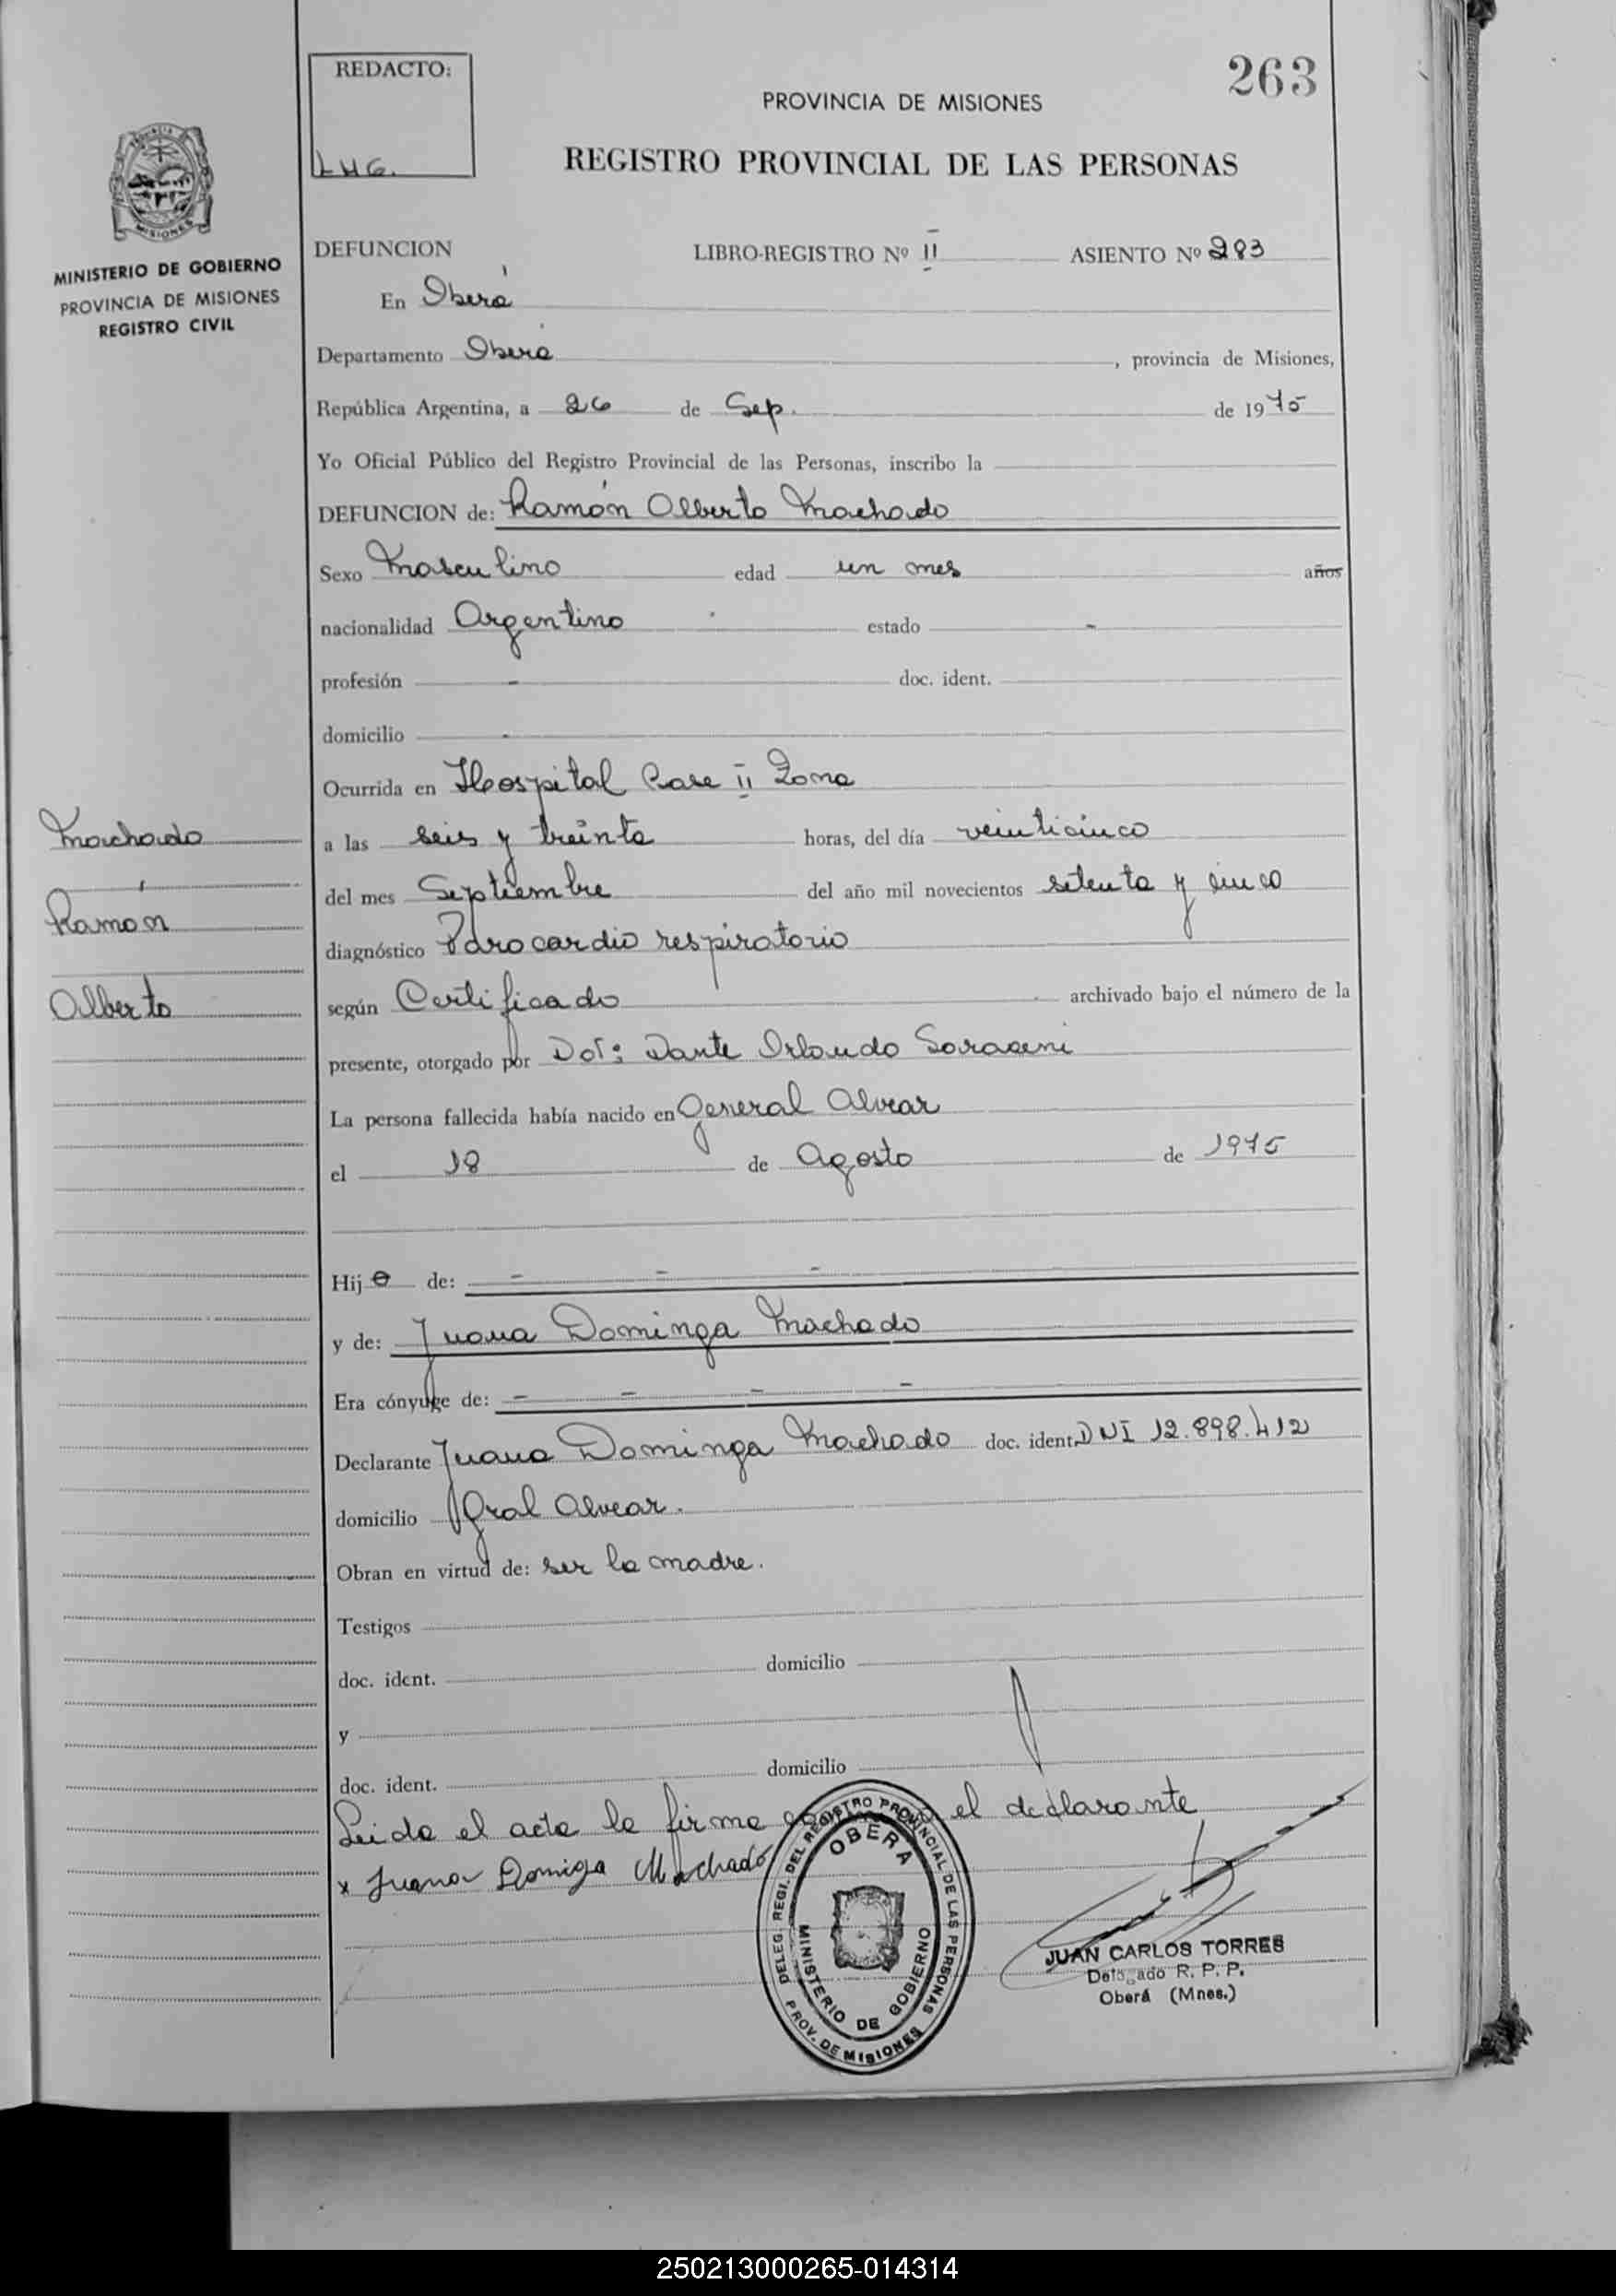 263
REDACTO:
LHG.
PROVINCIA DE MISIONES
REGISTRO PROVINCIAL DE LAS PERSONAS
MISIONES
MINISTERIO DE GOBIERNO
PROVINCIA DE MISIONES
REGISTRO CIVIL
DEFUNCION LIBRO-REGISTRO Nº II ASIENTO Nº 283
En Oberá
Departamento Oberá, provincia de Misiones,
República Argentina, a 26 de Sep. de 1975
Yo Oficial Público del Registro Provincial de las Personas, inscribo la
DEFUNCION de: Ramón Alberto Machado
Sexo Masculino edad un mes años
nacionalidad Argentino estado -
profesión - doc. ident.
domicilio -
Ocurrida en Hospital Base II Zona
Machado
a las seis y treinta horas, del día veinticinco
del mes Septiembre del año mil novecientos setenta y cinco
Ramón
diagnóstico Paro cardio respiratorio
Alberto
según Certificado archivado bajo el número de la
presente, otorgado por Dot: Dante Orlando Soraceni
La persona fallecida había nacido en General Alvear
el 18 de Agosto de 1975
Hijo de: - - -
y de: Juana Dominga Machado
Era cónyuge de: - - - -
Declarante Juana Dominga Machado doc. ident. DNI 12.898.412
domicilio Gral Alvear.
Obran en virtud de: ser la madre.
Testigos
doc. ident. domicilio
y
doc. ident. domicilio
Leida el acta la firma el declarante
x Juana Domiga Machado
DELEG. REGI. DEL REGISTRO PROVINCIAL DE LAS PERSONAS
OBERA
MINISTERIO DE GOBIERNO
PROV. DE MISIONES
JUAN CARLOS TORRES
Delegado R. P. P.
Oberá (Mnes.)
250213000265-014314